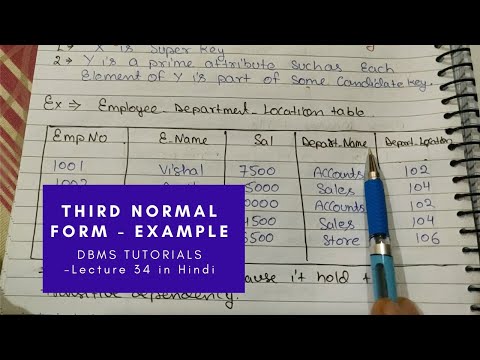 1→ X is Super key
2→ Y is a prime attribute such as Each
Element of Y is part of some Candidate key.
Ex ⇒ Employee-Department-Location table.
Emp No E.Name Sal Depart.Name Depart.Location
1001 Vishal 7500 Accounts 102
1002 5000 Sales 104
0000 Accounts 102
4500 Sales 104
6500 Store 106
THIRD NORMAL
FORM - EXAMPLE
DBMS TUTORIALS
-Lecture 34 in Hindi
it hold
dependency.